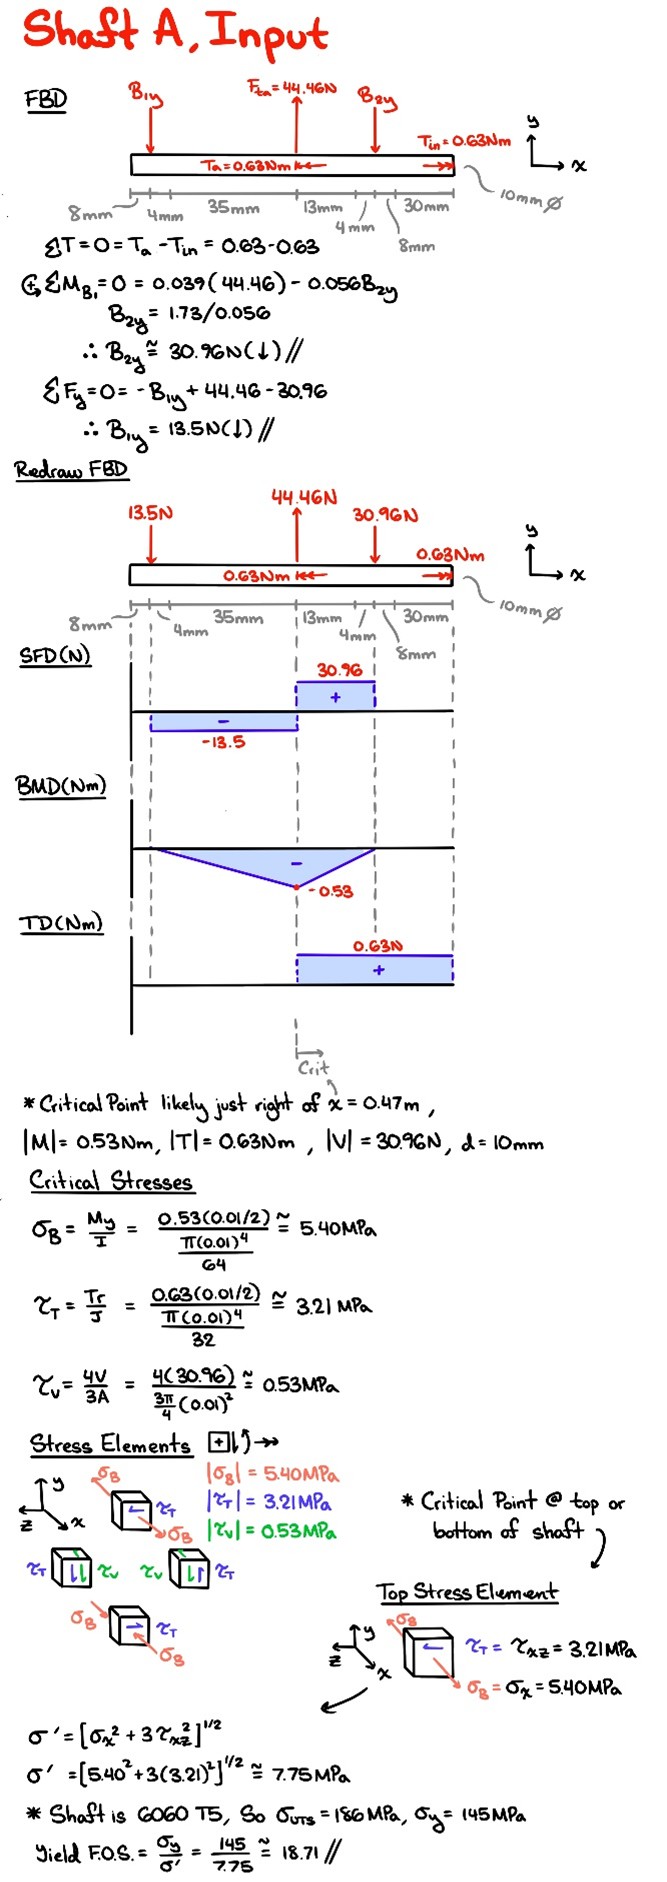 Shaft A, Input
FBD
B1y
Fta = 44.46N
B2y
Tin = 0.63Nm
Ta = 0.63Nm
y
x
10mm Ø
8mm
4mm
35mm
13mm
4mm
8mm
30mm
ΣT = 0 = Ta - Tin = 0.63 - 0.63
ΣMB1 = 0 = 0.039(44.46) - 0.056B2y
B2y = 1.73/0.056
∴ B2y ≅ 30.96N(↓) //
ΣFy = 0 = -B1y + 44.46 - 30.96
∴ B1y = 13.5N(↓) //
Redraw FBD
13.5N
44.46N
30.96N
0.63Nm
0.63Nm
y
x
10mm Ø
8mm
4mm
35mm
13mm
4mm
8mm
30mm
SFD(N)
30.96
+
-
-13.5
BMD(Nm)
-
-0.53
TD(Nm)
0.63N
+
Crit
* Critical Point likely just right of x = 0.47m,
|M| = 0.53Nm, |T| = 0.63Nm, |V| = 30.96N, d = 10mm
Critical Stresses
σB = My/I = 0.53(0.01/2) / (π(0.01)⁴/64) ≅ 5.40MPa
τT = Tr/J = 0.63(0.01/2) / (π(0.01)⁴/32) ≅ 3.21MPa
τV = 4V/3A = 4(30.96) / (3π/4 (0.01)²) ≅ 0.53MPa
Stress Elements
|σB| = 5.40MPa
|τT| = 3.21MPa
|τV| = 0.53MPa
y
z
x
σB
τT
σB
τT
τV
τV
τT
σB
τT
σB
* Critical Point @ top or
bottom of shaft
Top Stress Element
y
z
x
σB
τT = τxz = 3.21MPa
σB = σx = 5.40MPa
σ' = [σx² + 3τxz²]^1/2
σ' = [5.40² + 3(3.21)²]^1/2 ≅ 7.75MPa
* Shaft is 6060 T5, So σUTS = 186MPa, σy = 145MPa
Yield F.O.S. = σy/σ' = 145/7.75 ≅ 18.71 //